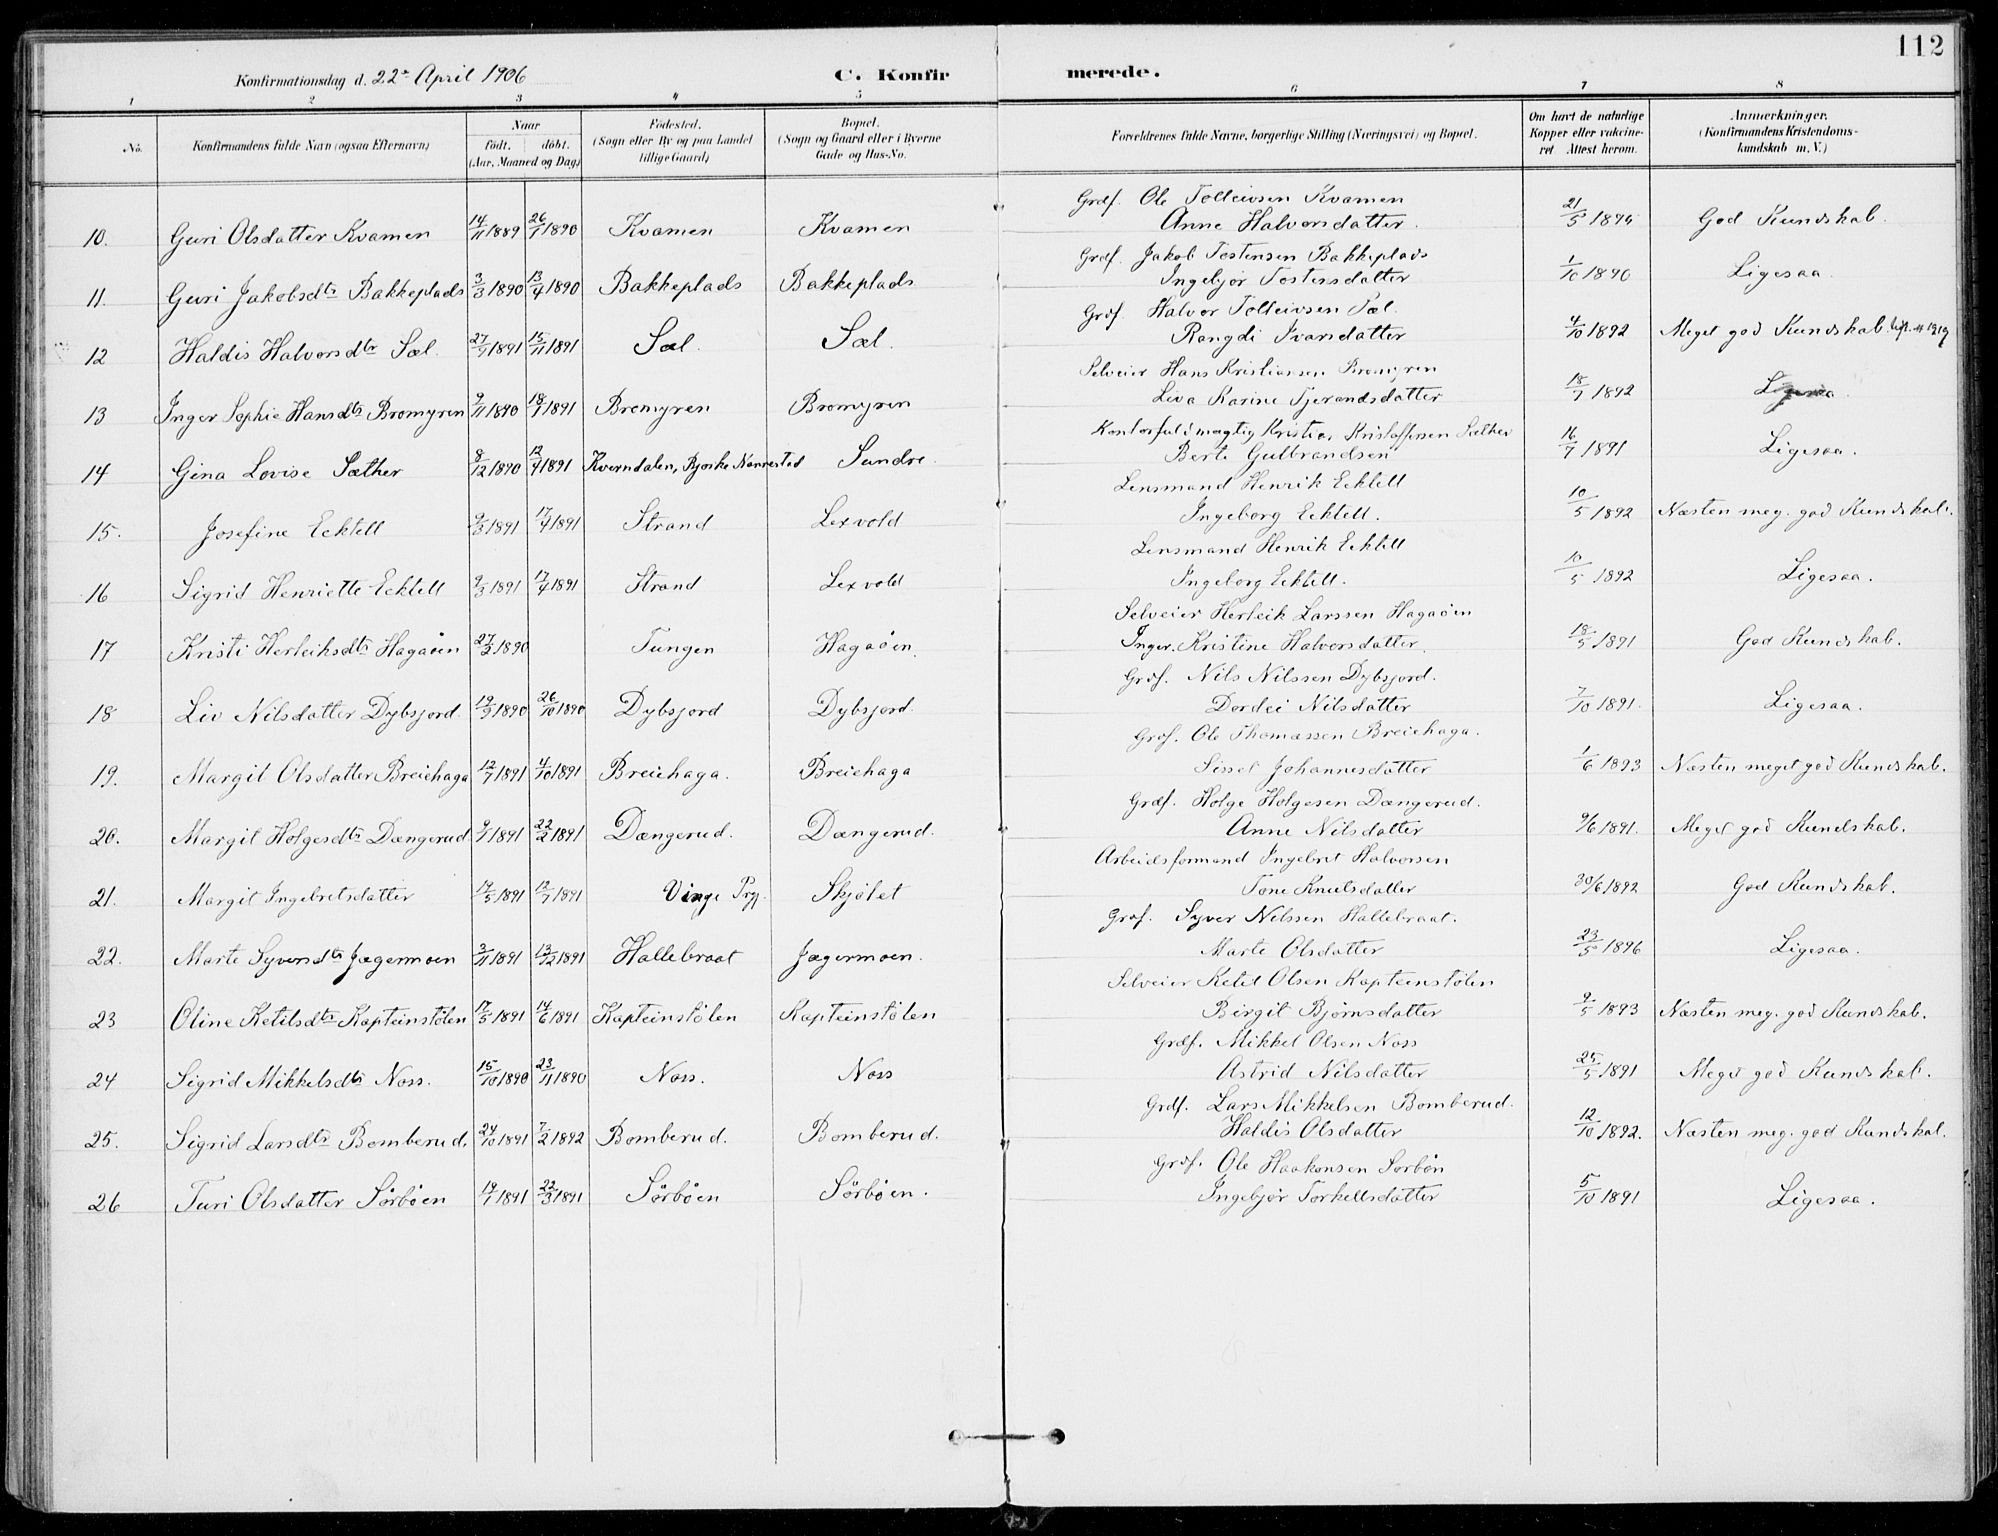 112
Konfirmationsdag d. 22de April 1906 C. Konfirmerede.
1 2 3 4 5 6 7 8
No. Konfirmandens fulde Navn (ogsaa Efternavn) Naar født. døbt. (Aar, Maaned og Dag) Fødested. (Sogn eller By og paa Landet tillige Gaard) Bopæl. (Sogn og Gaard eller i Byerne Gade og Hus-No. Forældrenes fulde Navne, borgerlige Stilling (Næringsvei) og Bopæl. Om havt de naturlige Kopper eller vakcineret Attest herom. Anmærkninger. (Konfirmandens Kristendomskundskab m. V.)
Grdf. Ole Tolleivsen Kvamen
10. Guri Olsdatter Kvamen 14/11 1889 26/1 1890 Kvamen Kvamen Anne Halvorsdatter. 21/5 1894 God Kundskab.
Grdf. Jakob Tostensen Bakkeplads
11. Guri Jakobsdtr Bakkeplads 3/3 1890 13/4 1890 Bakkeplads Bakkeplads Ingebjør Tostensdatter 1/10 1890 Ligesaa.
Grdf. Halvor Tolleivsen Sæl.
12 Haldis Halvorsdtr Sæl. 27/9 1891 15/11 1891 Sæl. Sæl. Rangdi Ivarsdatter 4/10 1892 Meget god Kundskab.
Selveier Hans Kristiansen Bromyren
13 Inger Sophie Hansdtr Bromyren 9/11 1890 18/1 1891 Bromyren Bromyren Liva Karine Tjerandsdatter 18/7 1892 Ligesaa.
Kontorfuldmægtig Kristian Kristoffersen Sæther
14 Gina Lovise Sæther 8/12 1890 12/4 1891 Kverndalen, Sundre. Berte Gulbrandsen 16/7 1891 Ligesaa.
Lensmand Henrik Ecktell
15. Josefine Ecktell 9/3 1891 17/4 1891 Strand Lexvold Ingeborg Ecktell. 10/5 1892 Næsten meg. god Kundskab.
Lensmand Henrik Ecktell
16 Sigrid Henriette Ecktell 9/3 1891 17/4 1891 Strand Lexvold Ingeborg Ecktell. 10/5 1892 Ligesaa.
Selveier Herleik Larssen Hagaøen
17 Kristi Herleiksdtr Hagaøen 27/3 1890 Tungen Hagaøen. Inger Kristine Halvorsdatter. 18/5 1891 God Kundskab.
Grdf. Nils Nilssen Dybsjord.
18 Liv Nilsdatter Dybsjord. 19/9 1890 26/10 1890 Dybsjord Dybsjord. Dordei Nilsdatter 7/10 1891. Ligesaa.
Grdf. Ole Thomassen Breiehaga.
19. Margit Olsdatter Breiehaga 12/7 1891 4/10 1891 Breiehaga. Breiehaga Sissel Johannesdatter 1/6 1893 Næsten meget god Kundskab.
Grdf. Holge Holgesen Dængerud.
20. Margit Holgesdtr Dængerud 9/1 1891 22/2 1891 Dængerud. Dængerud. Anne Nilsdatter 9/6 1891. Meget god Kundskab.
Arbeidsformand Ingebret Halvorsen
21. Margit Ingebretsdatter 14/5 1891 12/7 1891 Vinge Prgj. Skjølet Tone Knutsdatter 30/6 1892 God Kundskab.
Grdf. Syver Nilssen Hallebraat.
22. Marte Syversdtr Jægermoen 3/11 1891 13/12 1891 Hallebraat Jægermoen. Marte Olsdatter 23/5 1896 Ligesaa.
Selveier Ketil Olsen Kapteinstølen
23 Oline Ketilsdtr Kapteinstølen 17/5 1891 14/6 1891 Kapteinstølen Kapteinstølen Birgit Bjørnsdatter 9/5 1893 Næsten meg. god Kundskab.
Grdf. Mikkel Olsen Noss
24 Sigrid Mikkelsdtr Noss. 15/10 1890 23/11 1890 Noss. Noss Astrid Nilsdatter 25/5 1891 Meget god Kundskab.
Grdf. Lars Mikkelsen Bomberud.
25. Sigrid Larsdtr Bomberud. 24/10 1891 7/2 1892 Bomberud. Bomberud. Haldis Olsdatter 12/10 1892. Næsten meg. god Kundskab.
Grdf. Ole Haakonsen Sørbøn
26 Turi Olsdatter Sørbøen 19/1 1891 22/3 1891 Sørbøen Sørbøen. Ingebjør Torkellsdatter 5/10 1891 Ligesaa.